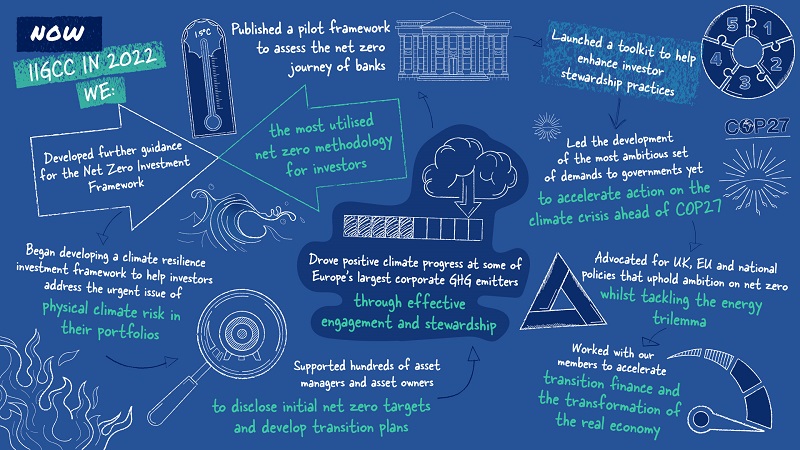 NOW
IIGCC IN 2022
WE:
Developed further guidance
for the Net Zero Investment
Framework
the most utilised
net zero methodology
for investors
Began developing a climate resilience
investment framework to help investors
address the urgent issue of
physical climate risk in
their portfolios
Supported hundreds of asset
managers and asset owners
to disclose initial net zero targets
and develop transition plans
Drove positive climate progress at some of
Europe's largest corporate GHG emitters
through effective
engagement and stewardship
1.5°C
Published a pilot framework
to assess the net zero
journey of banks
Launched a toolkit to help
enhance investor
stewardship practices
5 1
4 2
3
COP27
Led the development
of the most ambitious set
of demands to governments yet
to accelerate action on the
climate crisis ahead of COP27
Advocated for UK, EU and national
policies that uphold ambition on net zero
whilst tackling the energy
trilemma
Worked with our
members to accelerate
transition finance and
the transformation of
the real economy